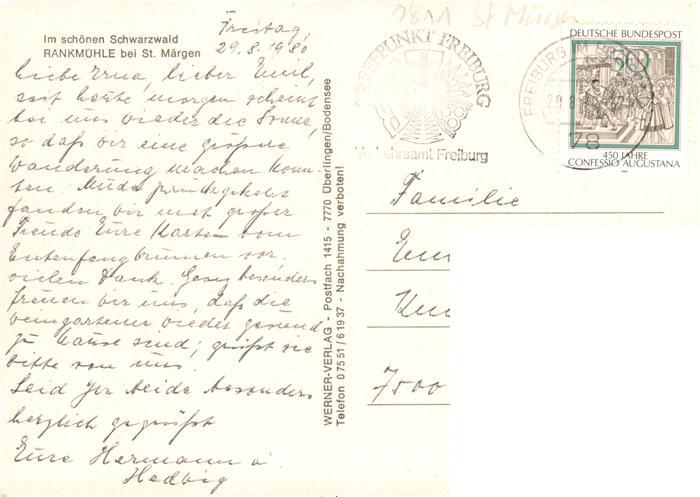 Im schönen Schwarzwald
RANKMÜHLE bei St. Märgen
Freitag,
29.8.1980
Liebe Erna, lieber Emil,
seit heute morgen scheint
bei uns wieder die Sonne,
so daß wir eine größere
Wanderung machen konn-
ten. Müde zurückgekehrt
fanden wir mit großer
Freude Eure Karten vom
Entenfangbrunnen vor.
vielen Dank. Ganz besonders
freuen wir uns, daß die
Weingartener wieder gesund
zu Hause sind; grüßt sie
bitte von uns.
Seid Ihr beide besonders
herzlich gegrüßt
Eure Hermann u
Hedwig
WERNER-VERLAG - Postfach 1415 - 7770 Überlingen/Bodensee
Telefon 07551/61937 - Nachahmung verboten!
7811 St
TREFFPUNKT FREIBURG
Verkehrsamt Freiburg
FREIBURG IM
78
DEUTSCHE BUNDESPOST
50
450 JAHRE
CONFESSIO AUGUSTANA
1980
Familie
7500